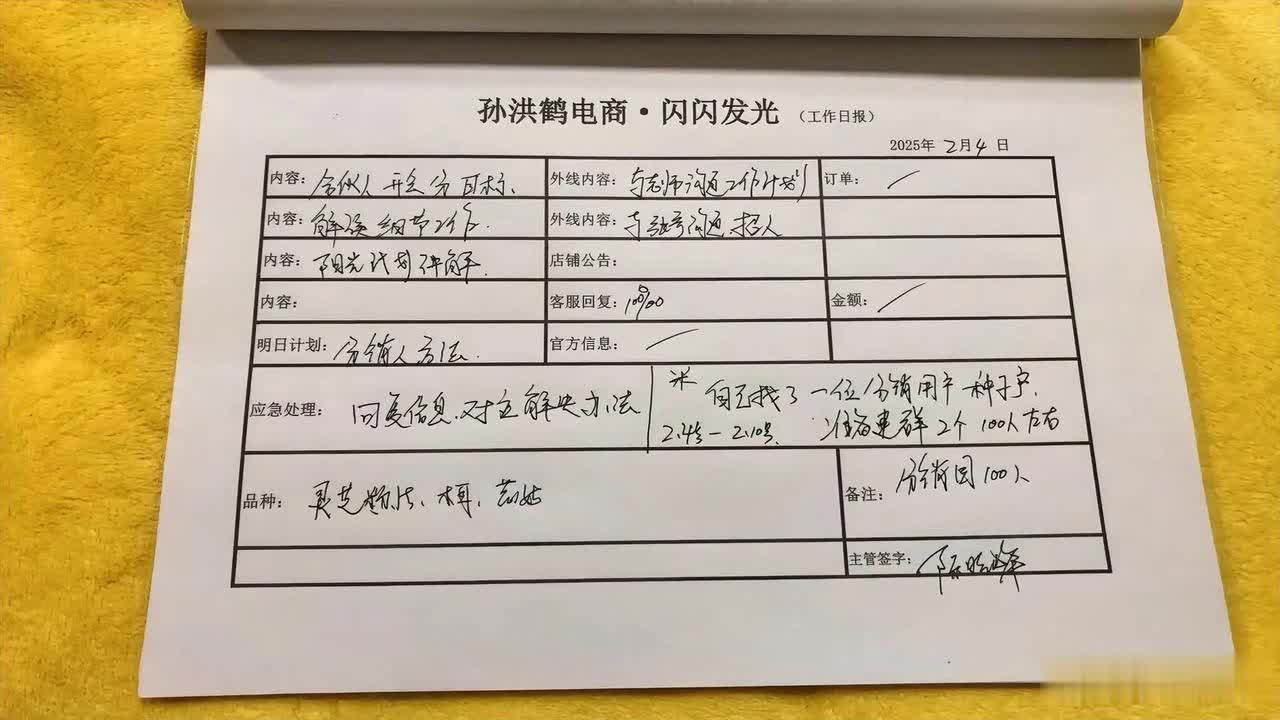 孙洪鹤电商·闪闪发光 （工作日报）
2025年 2月4日
内容：合伙人开会分目标、 外线内容：与老师沟通工作计划 订单：/
内容：解读细节工作. 外线内容：与 沟通招人
内容：阳光计划讲解. 店铺公告：
内容： 客服回复：100% 金额：/
明日计划：分销人方法. 官方信息：/
应急处理：回复信息、对立解决办法 自己找了一位分销用户种子户.
2.4号—2.10号. 准备建群2个100人左右
品种：灵芝 、木耳、 备注：分销团100人
主管签字：